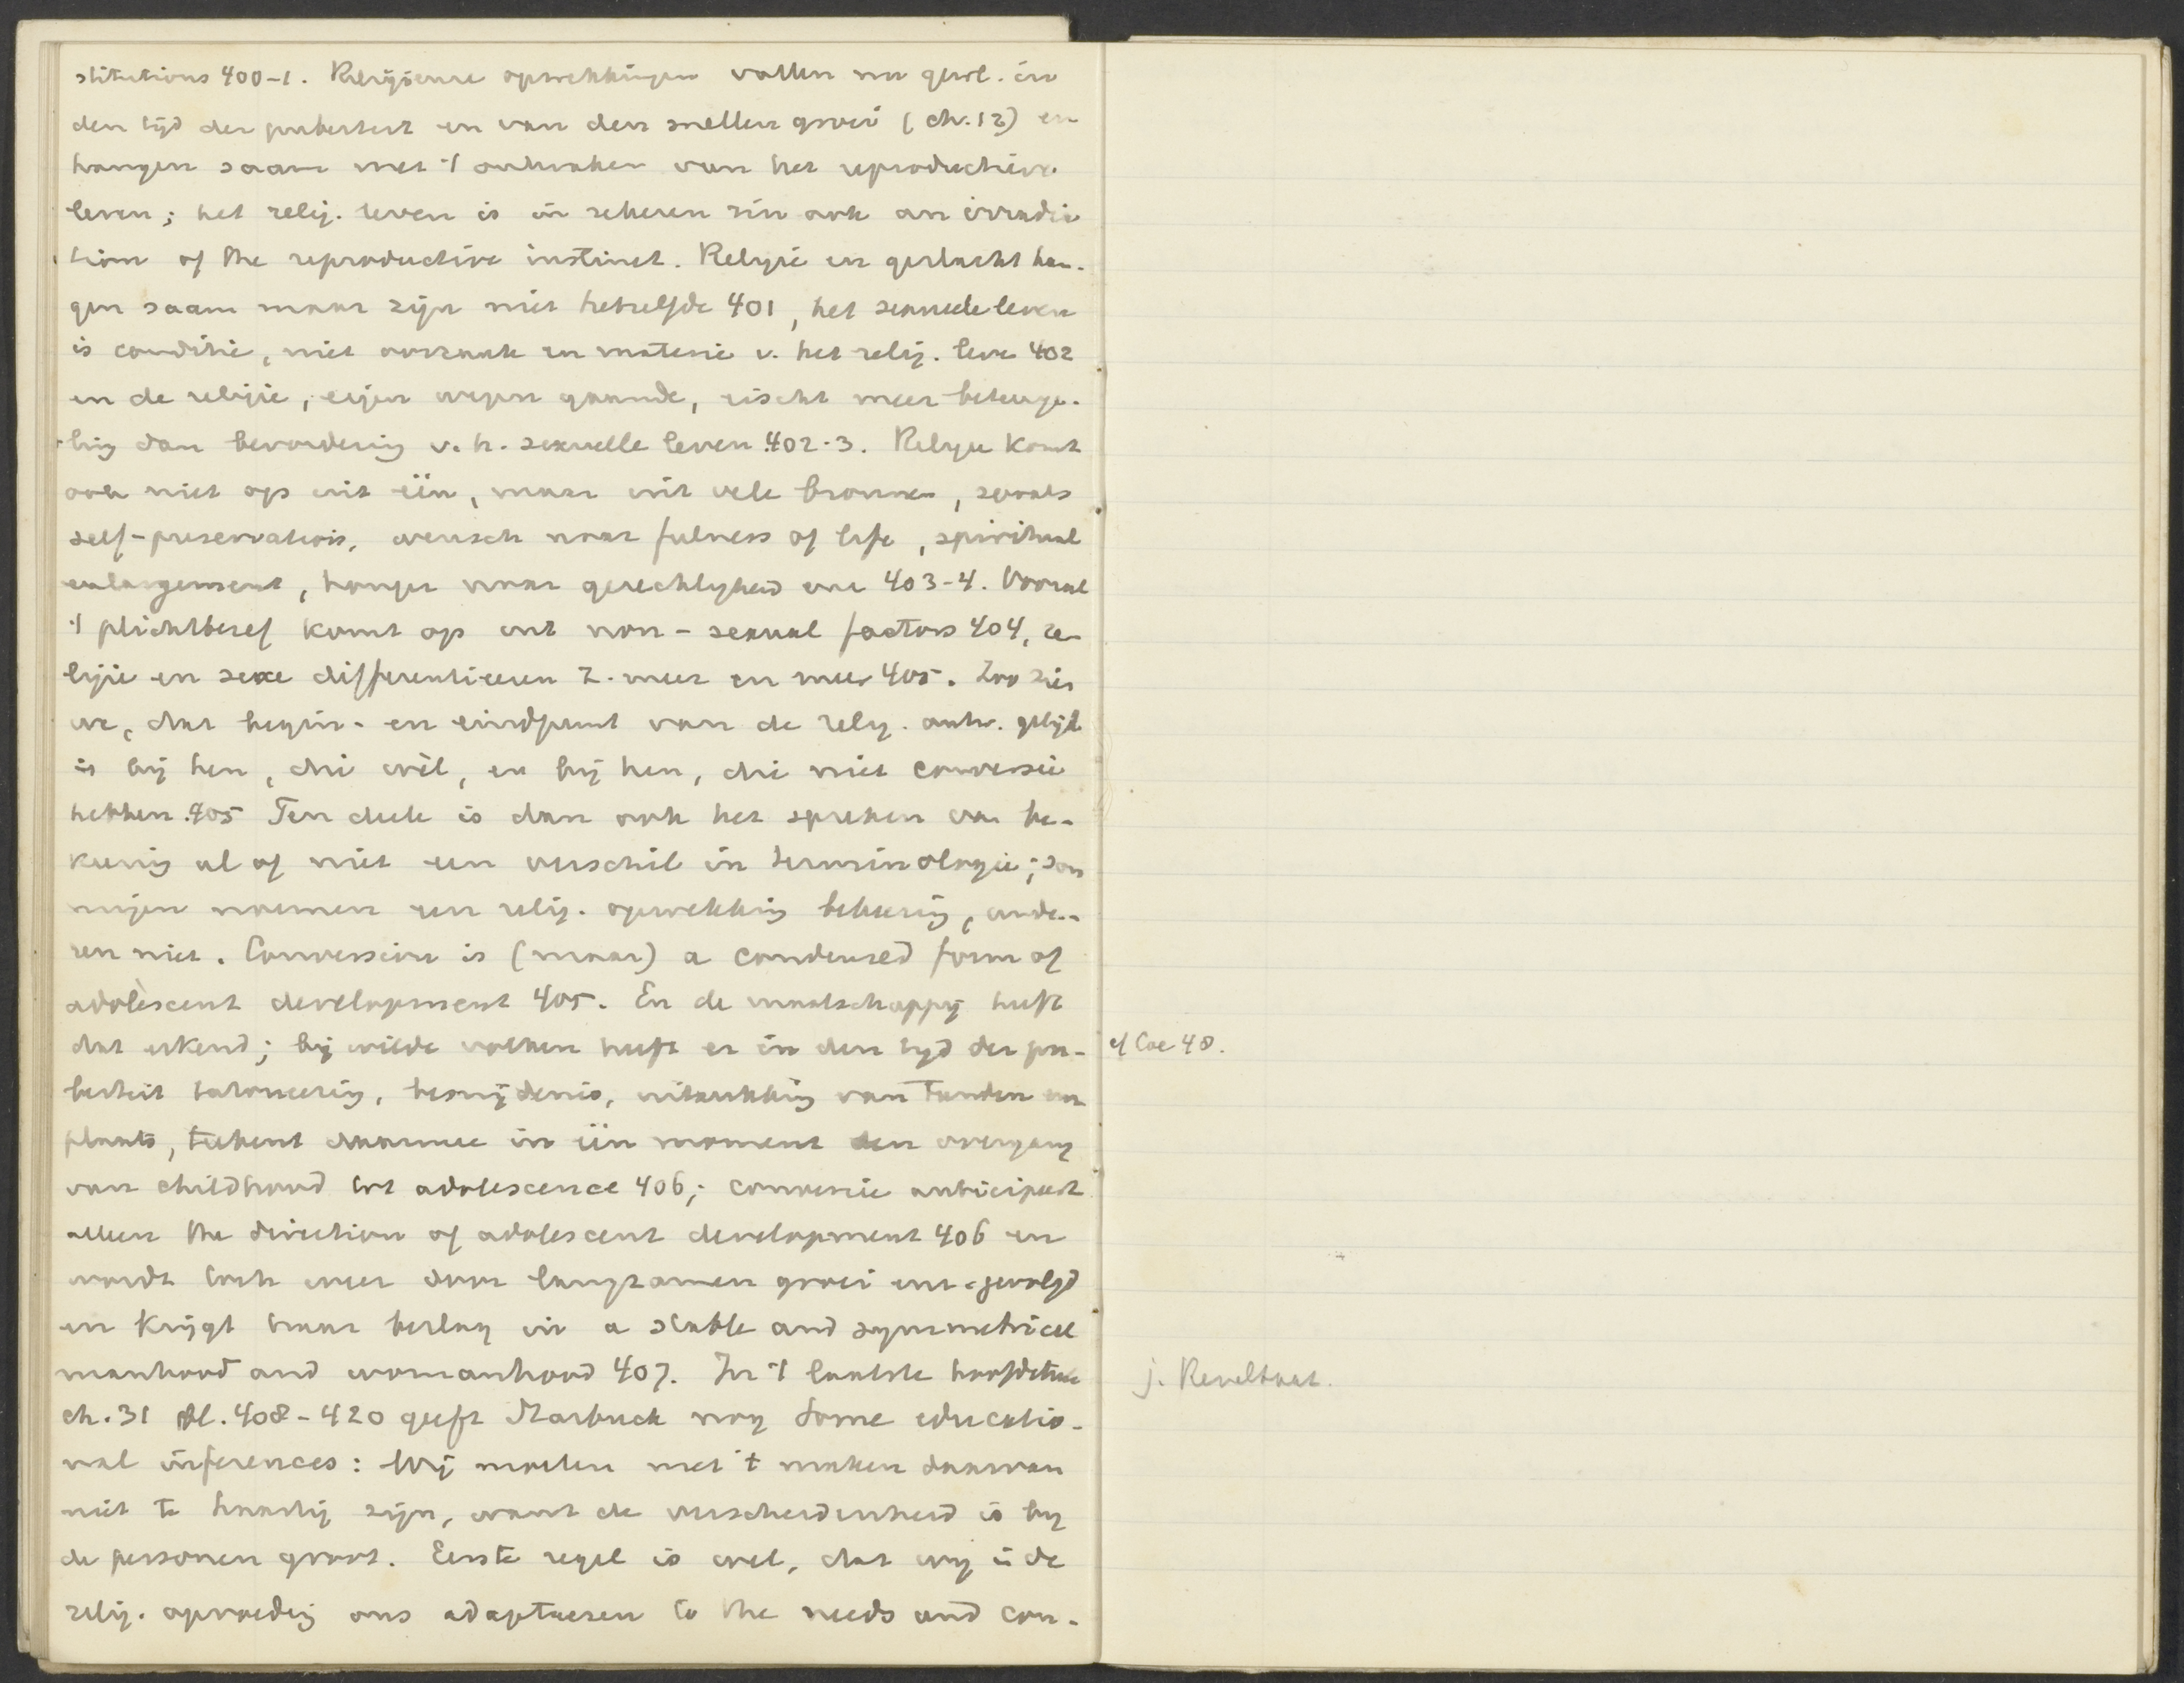 stitutions 400-1. Religieuse opwekkingen vallen nu gewl. in
den tijd der puberteit en van den snellen groei (ch. 12) en
hangen saam met 't ontwaken van het reproductieve
leven; het relig. leven is in zekeren zin ook an irradia
tion of the reproductive instinct. Religie en geslacht han-
gen saam maar zijn niet hetzelfde 401, het sexueele leven
is conditie, niet oorzaak en materie v. het relig. leve 402
en de religie, eigen wegen gaande, eischt meer beteuge-
ling dan bevordering v. h. sexuelle leven 402-3. Religie komt
ook niet op uit één, maar uit vele bronnen, zooals
self-preservation, wensch naar fulness of life, spiritual
enlargement, honger naar gerechtigheid enz 403-4. Vooral
't plichtbesef komt op uit non-sexual factors 404, re-
ligie en sexe differentieeren z. meer en meer 405. Zoo zien
we, dat begin- en eindpunt van de relig. ontw. gelijk
is bij hen, die wèl, en bij hen, die niet conversie
hebben 405 Ten deele is dan ook het spreken van be-
keering al of niet een verschil in terminologie; som
migen noemen een relig. opwekking bekeering, ande-
ren niet. Conversion is (maar) a condensed form of
adolescent development 405. En de maatschappij heeft
dat erkend; bij wilde volken heeft er in den tijd der pu-
berteit tatoueering, besnijdenis, uitrukking van tanden enz
plaats, teekent daarmee in één moment den overgang
van childhood tot adolescence 406; conversie anticipeert
alleen the direction of adolescent development 406 en
wordt toch weer door langzamen groei enz gevolgd
en krijgt haar beslag in a stable and symmetrical
manhood and womanhood 407. In 't laatste hoofdstuk
ch. 31 bl. 408-420 geeft Starbuck nog Some educatio-
nal inferences: Wij moeten met 't maken daarvan
niet te haastig zijn, want de verscheidenheid is bij
de personen groot. Eerste regel is wel, dat wij in de
relig. opvoeding ons adapteeren to the needs and con-
cf Coe 48.
j. Resultaat.